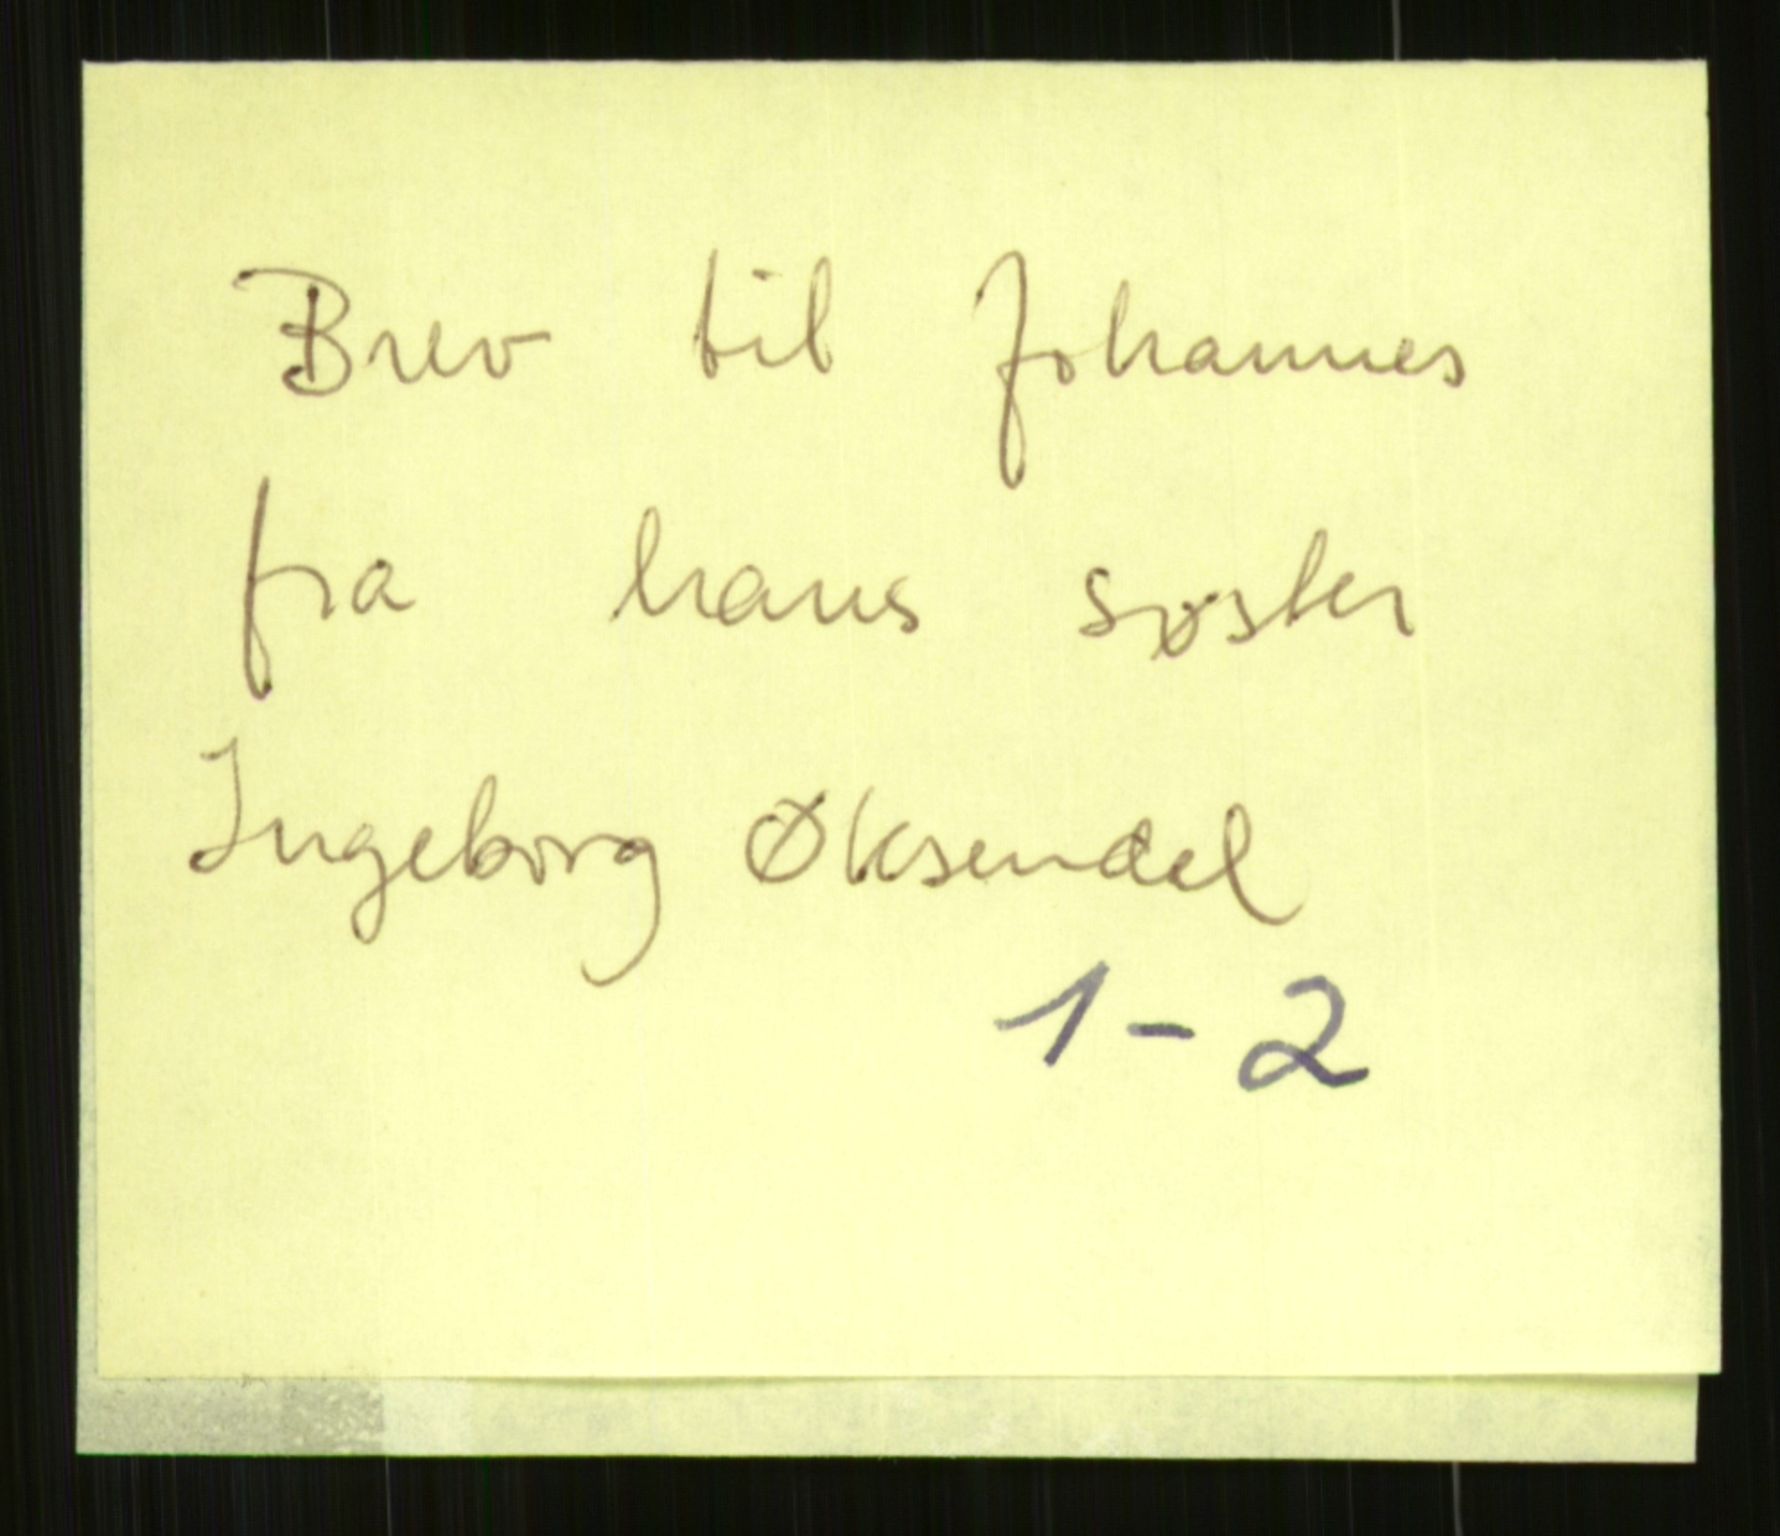 Brev til Johannes
fra hans søster
Ingeborg Øksendal
1-2